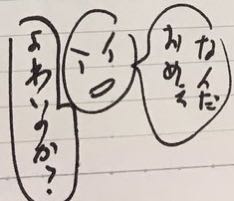 なんだ
おめえ
よわいのか？